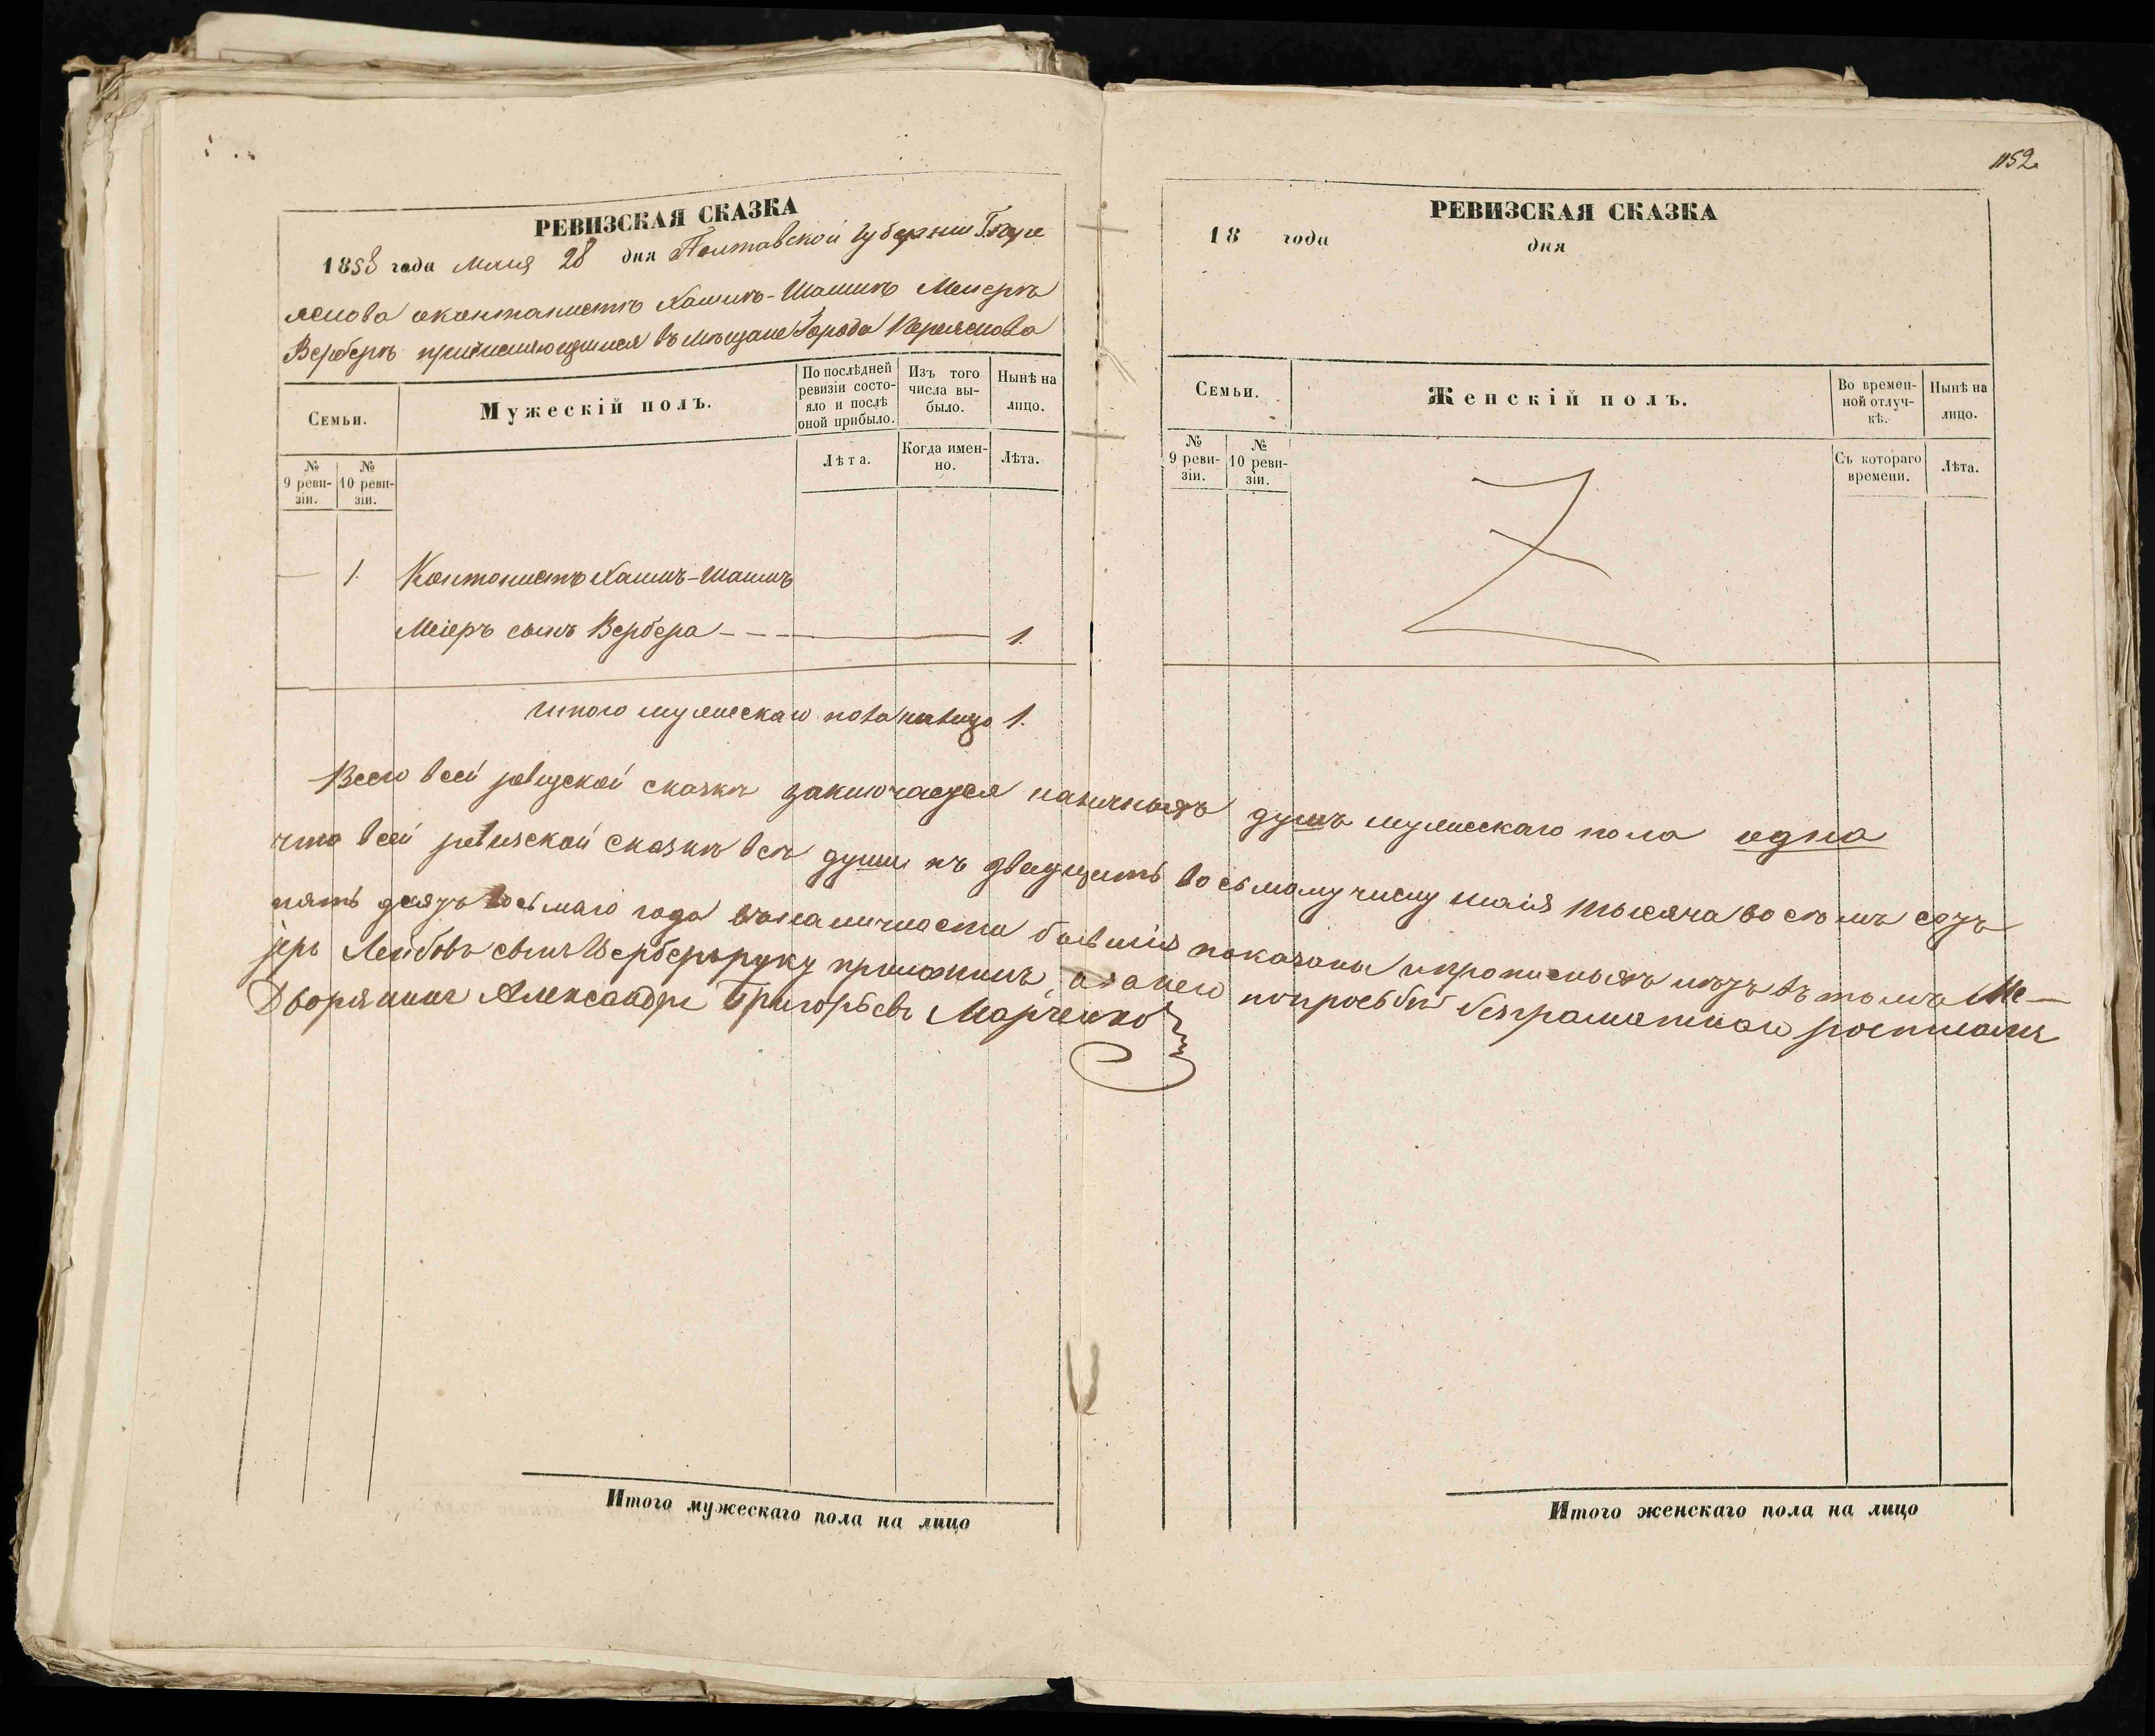 1152
РЕВИЗСКАЯ СКАЗКА
1858 года Маия 28 дня Полтавской Губернии Г. Пере
яслова окантонистѣ Хаимъ-Шаимъ Меиеръ
Верберъ причисляющимся въ мѣщане Города Переяслова
Семьи.
Мужескій полъ.
По послѣдней ревизіи состояло и послѣ оной прибыло.
Изъ того числа выбыло.
Нынѣ на лицо.
№ 9 ревизіи.
№ 10 ревизіи.
Лѣта.
Когда именно.
Лѣта.
1. Кантонистъ Хаимъ-Шаимъ
Меіеръ сынъ Вербера - - - 1.
Итого мужескаго пола налицо 1.
РЕВИЗСКАЯ СКАЗКА
18 года дня
Семьи.
Женскій полъ.
Во временной отлучкѣ.
Нынѣ на лицо.
№ 9 ревизіи.
№ 10 ревизіи.
Съ котораго времени.
Лѣта.
Z
Всего всей ревизской сказкѣ заключается наличныхъ душъ мужескаго пола одна
что всей ревизской сказкѣ всѣ души къ двадцать восьмому числу маія тысяча восемъ сотъ
пять десятъ восьмаго года вналичности бывшія показаны ипрописныхъ нѣтъ въ томъ Ме-
іеръ Лейбовъ сынъ Верберъ руку приложилъ, а занего попросьбѣ безграматнаго росписался
Дворянинъ Александръ Григорьевъ Марченко
Итого мужескаго пола на лицо
Итого женскаго пола на лицо